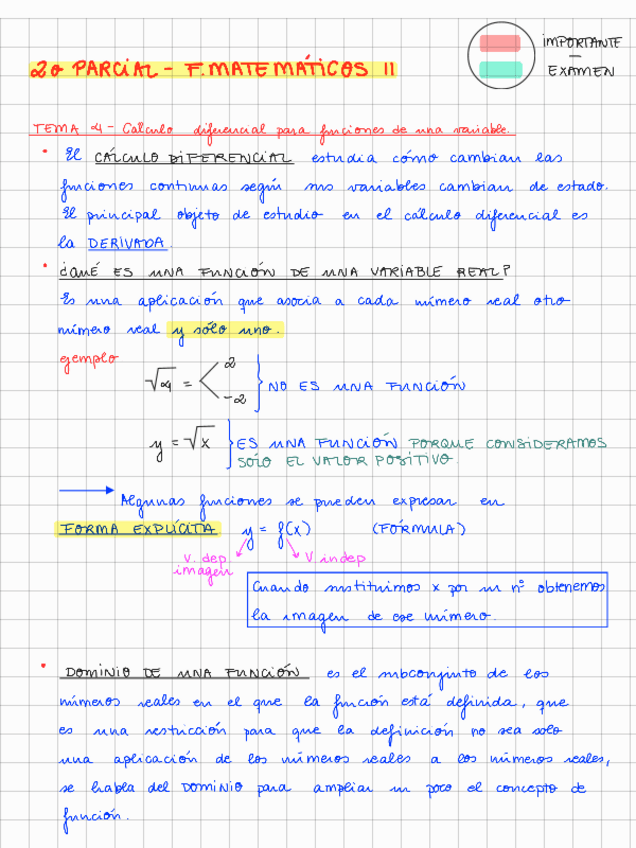 2o PARCIAL - F. MATEMÁTICOS II
IMPORTANTE
-
EXAMEN
TEMA 4 - Cálculo diferencial para funciones de una variable.
• El CÁLCULO DIFERENCIAL estudia cómo cambian las
funciones continuas según sus variables cambian de estado.
El principal objeto de estudio en el cálculo diferencial es
la DERIVADA.
• ¿QUÉ ES UNA FUNCIÓN DE UNA VARIABLE REAL?
Es una aplicación que asocia a cada número real otro
número real y sólo uno.
ejemplo
√4 = < 2
-2 } NO ES UNA FUNCIÓN
y = √x } ES UNA FUNCIÓN PORQUE CONSIDERAMOS
SÓLO EL VALOR POSITIVO.
→ Algunas funciones se pueden expresar en
FORMA EXPLÍCITA y = f(x) (FÓRMULA)
V. dep V indep
imagen
Cuando sustituimos x por un nº obtenemos
la imagen de ese número.
• DOMINIO DE UNA FUNCIÓN es el subconjunto de los
números reales en el que la función está definida, que
es una restricción para que la definición no sea solo
una aplicación de los números reales a los números reales,
se habla del DOMINIO para ampliar un poco el concepto de
función.